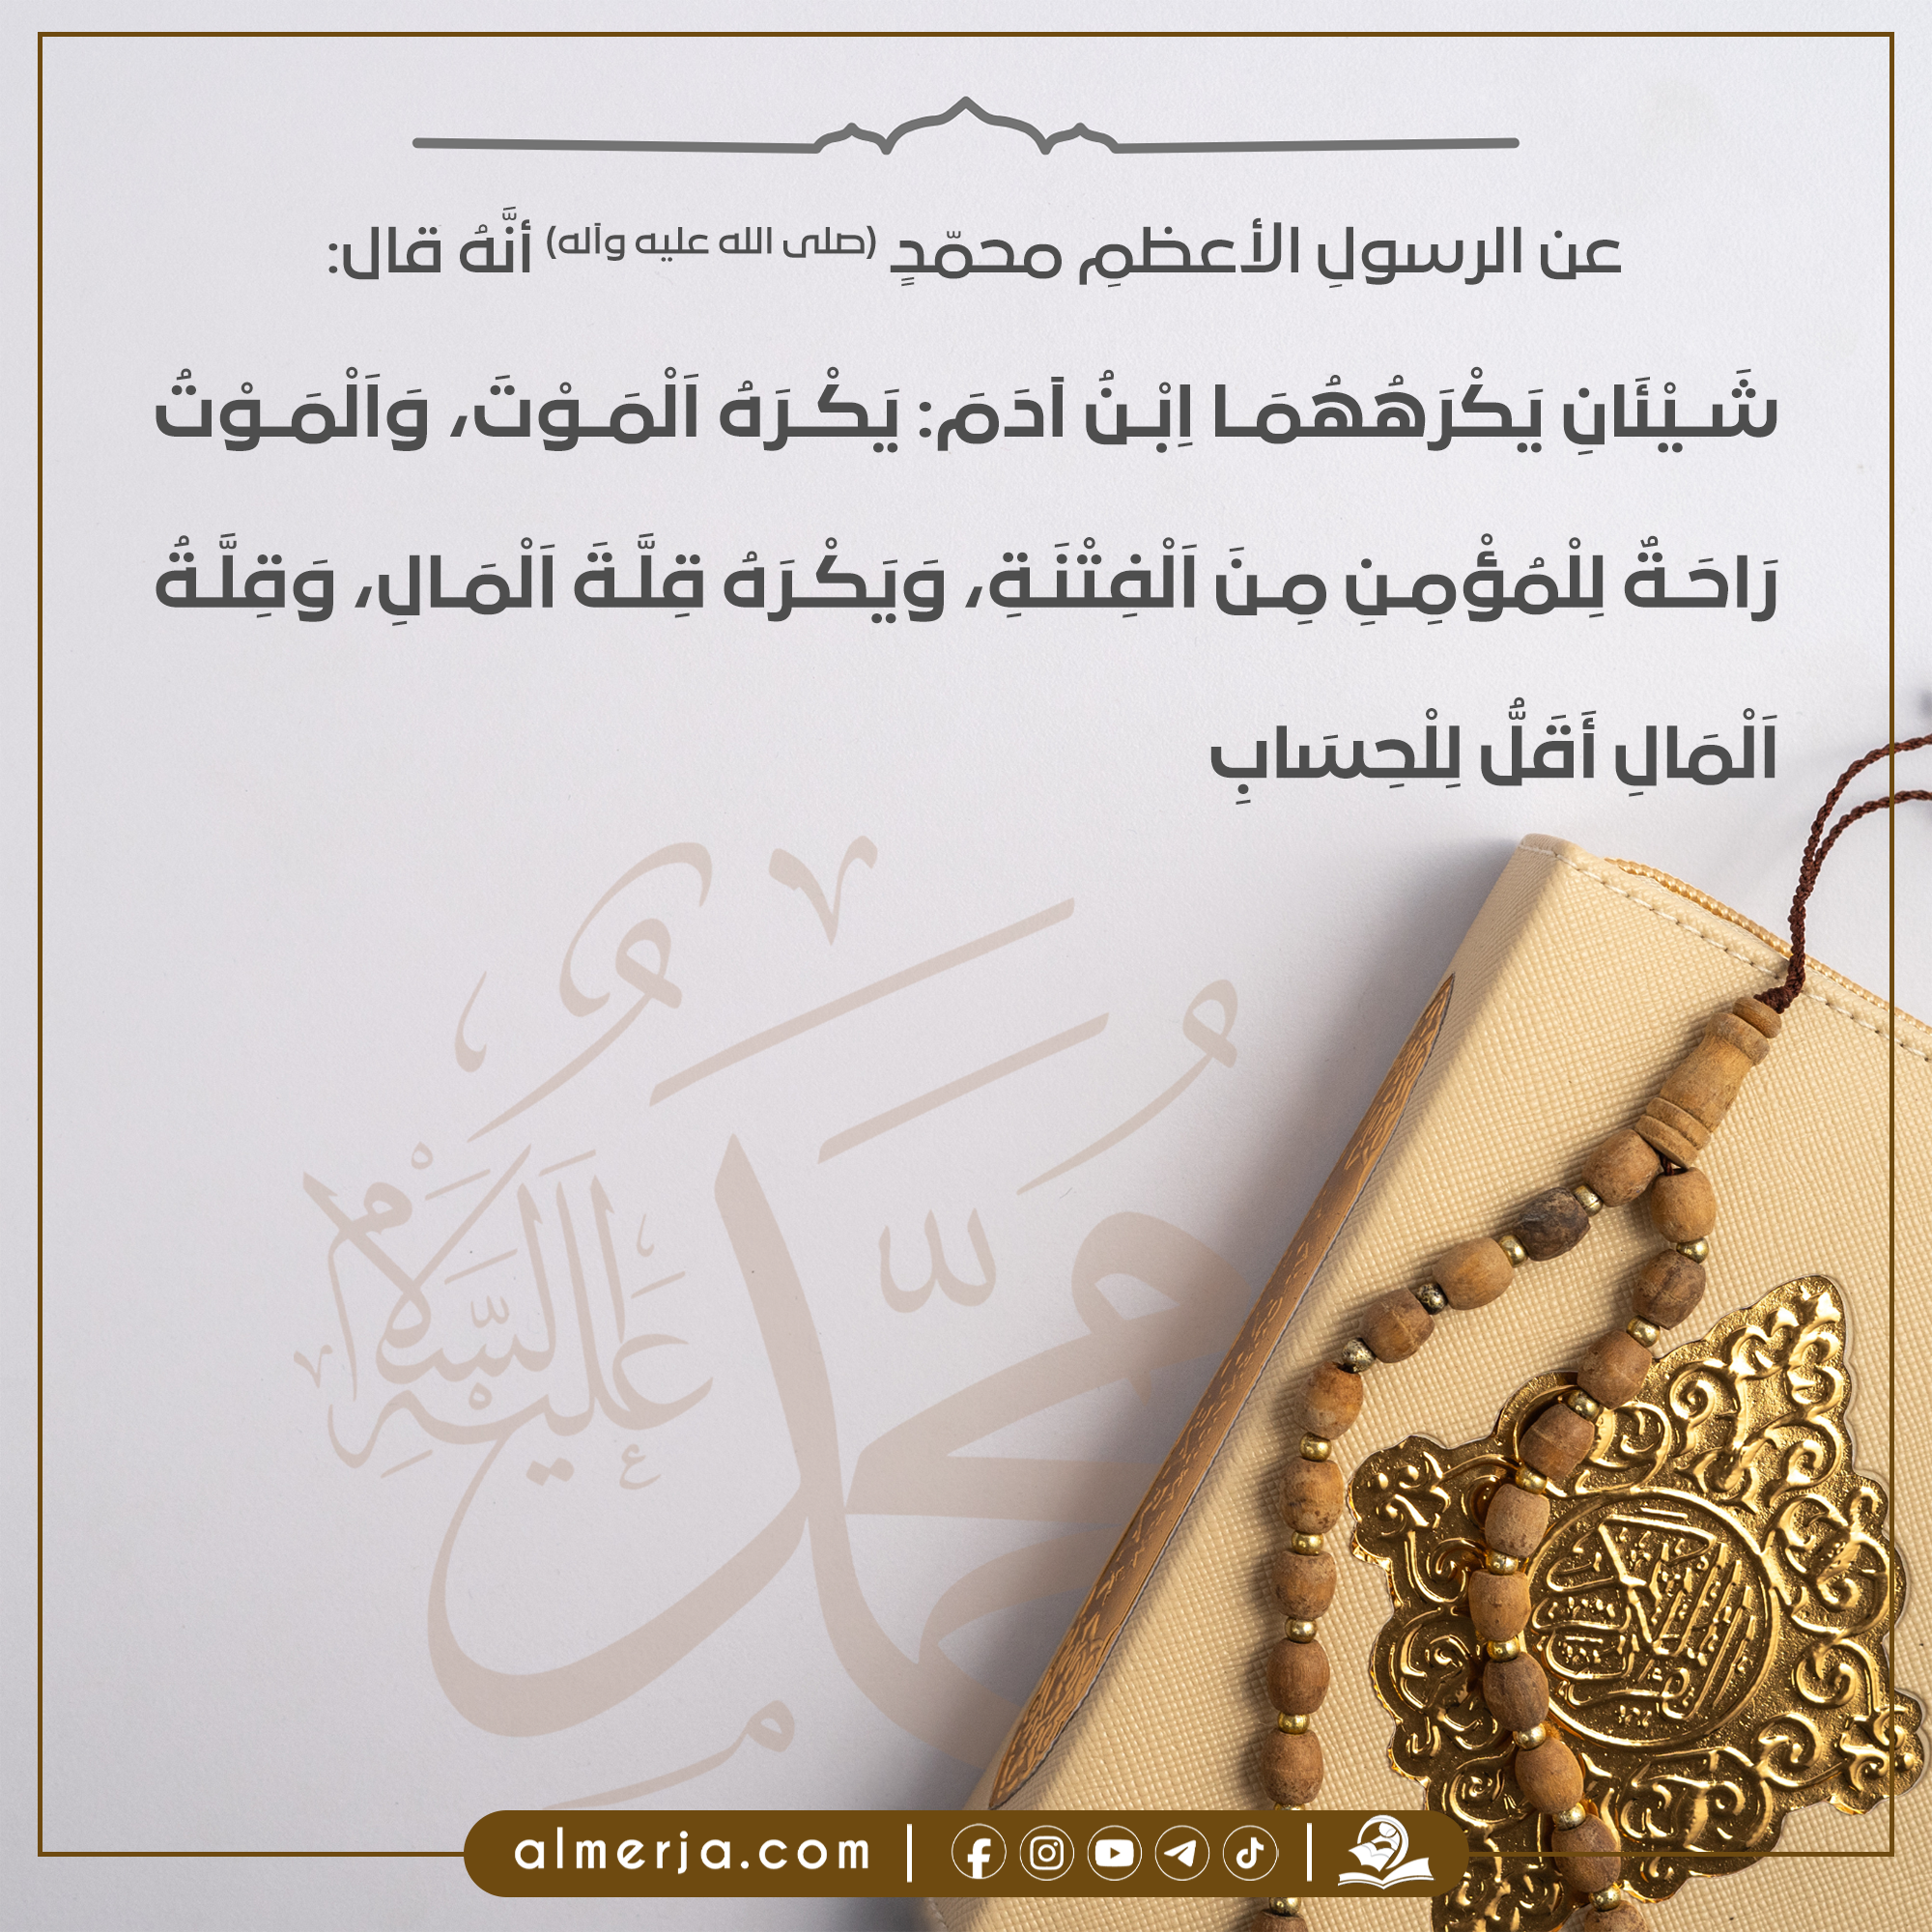 عن الرسولِ الأعظمِ محمّدٍ (صلى الله عليه وآله) أنَّهُ قال:
شَيْئَانِ يَكْرَهُهُمَا اِبْنُ آدَمَ: يَكْرَهُ اَلْمَوْتَ، وَاَلْمَوْتُ
رَاحَةٌ لِلْمُؤْمِنِ مِنَ اَلْفِتْنَةِ، وَيَكْرَهُ قِلَّةَ اَلْمَالِ، وَقِلَّةُ
اَلْمَالِ أَقَلُّ لِلْحِسَابِ
محمد
عليه السلام
almerja.com